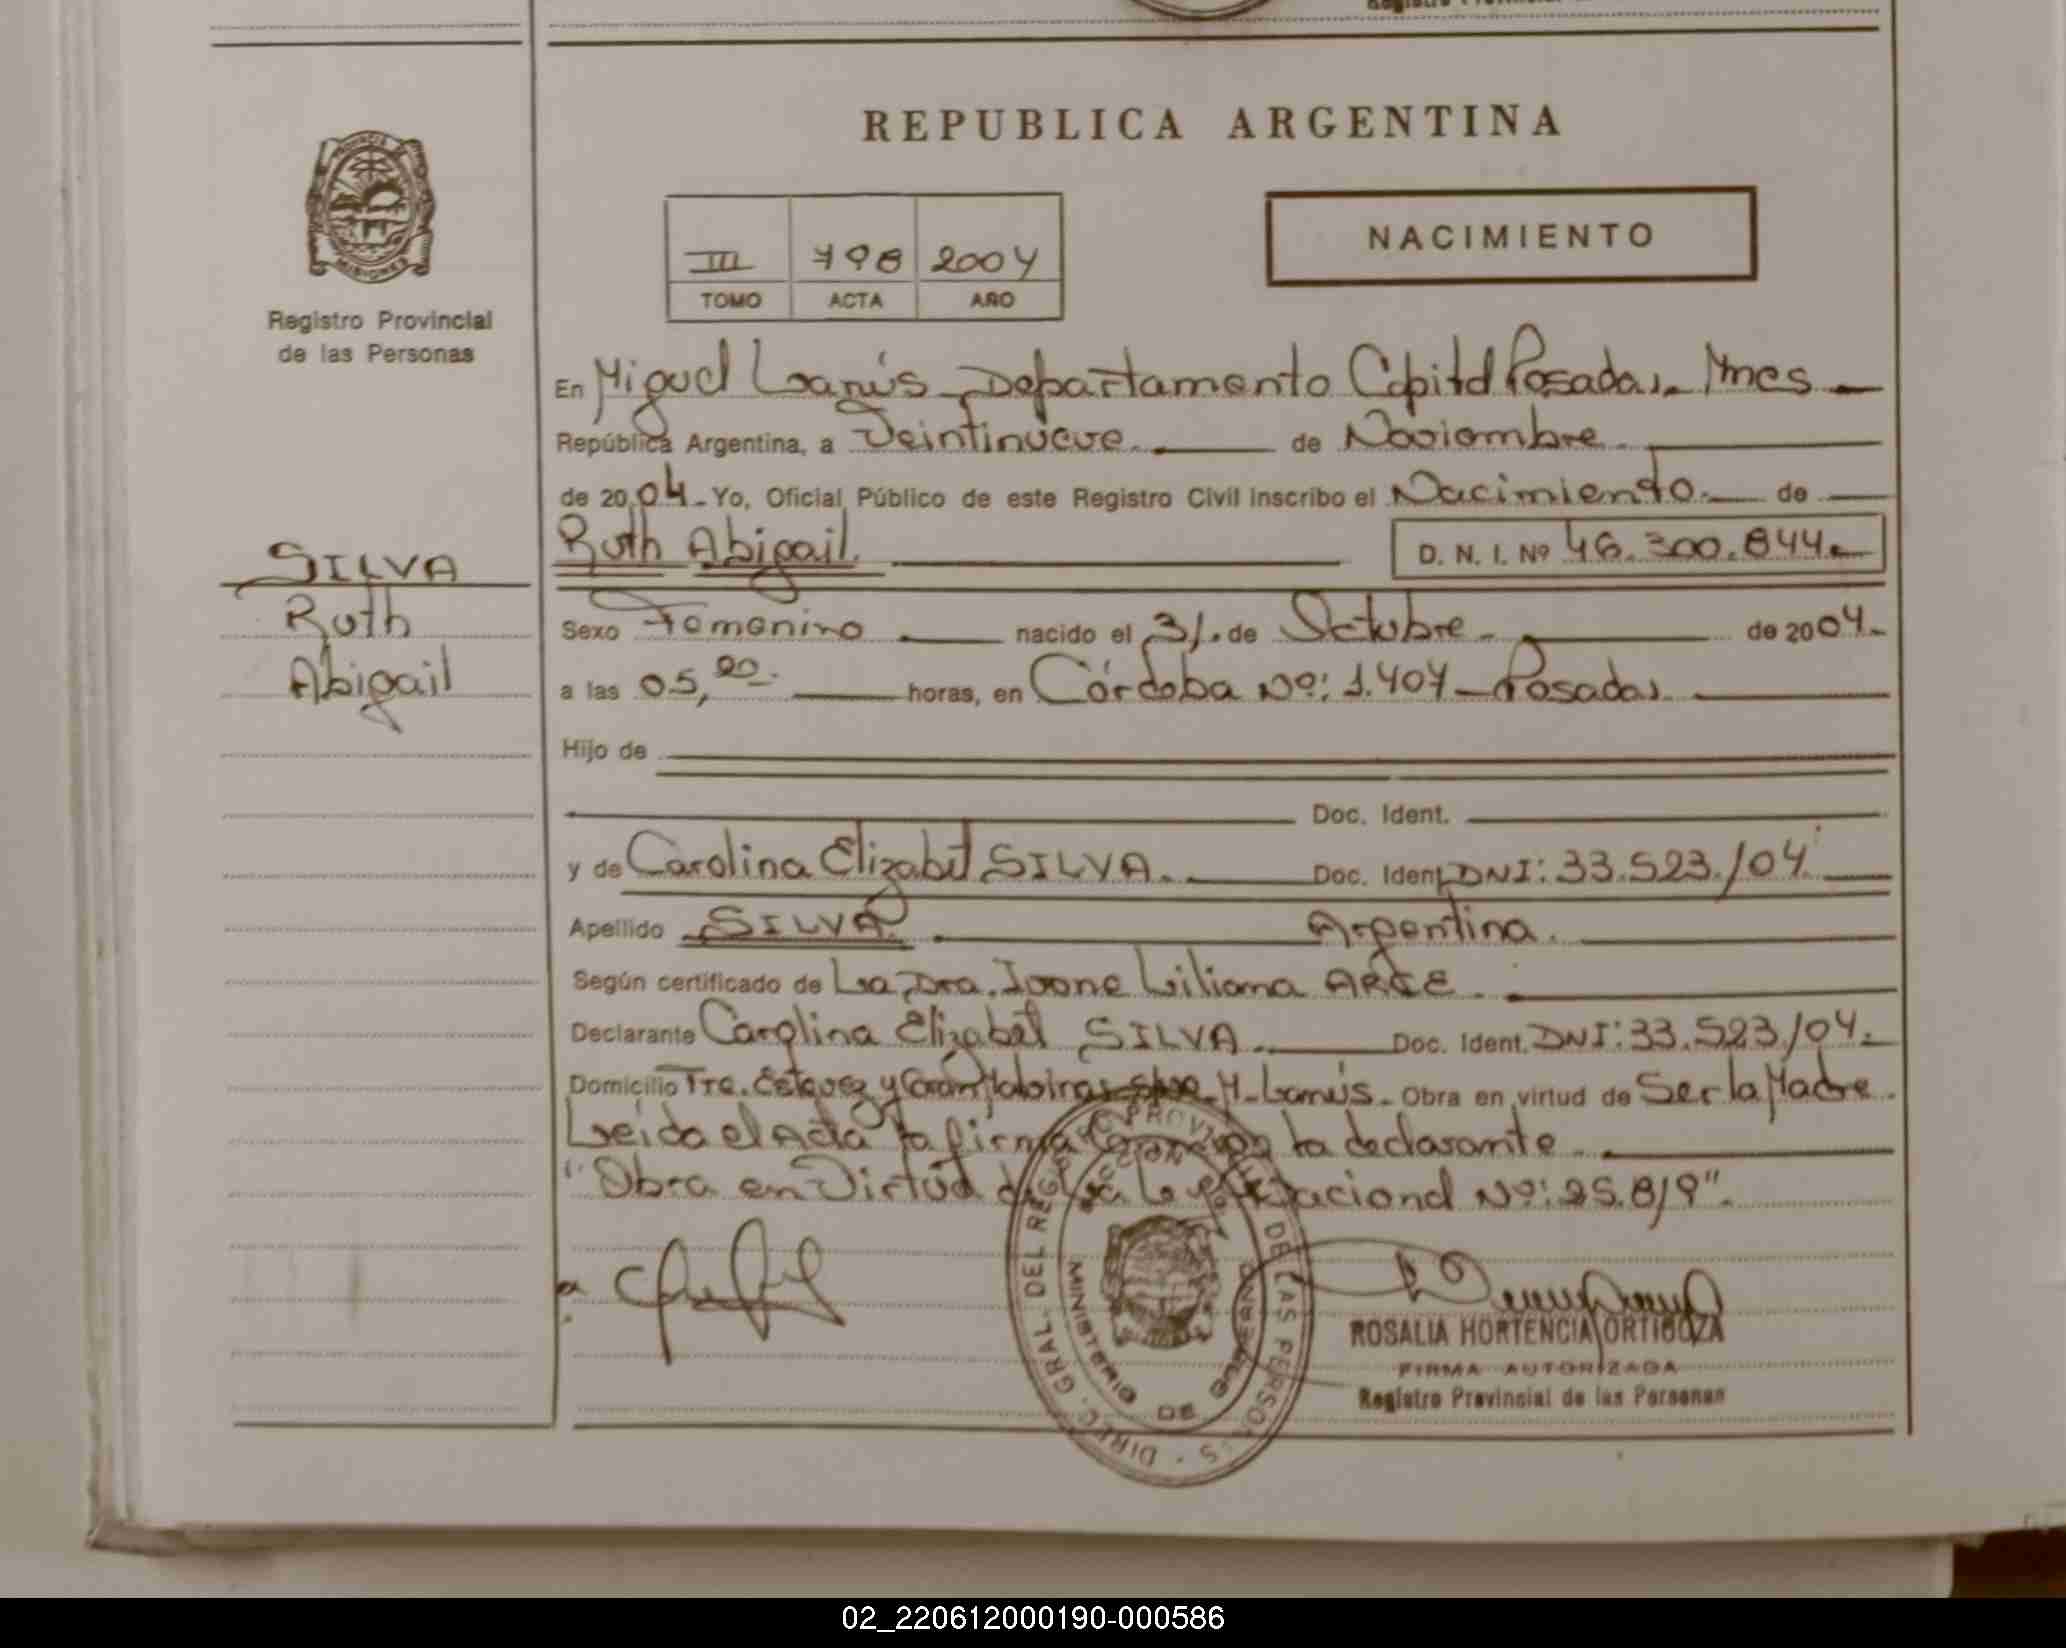 REPUBLICA ARGENTINA
PROVINCIA DE
MISIONES
Registro Provincial
de las Personas
III 798 2004
TOMO ACTA AÑO
NACIMIENTO
En Miguel Lanús - Departamento Capital Posadas - Mnes
República Argentina, a Veintinueve. de Noviembre.
de 2004 - Yo, Oficial Público de este Registro Civil inscribo el Nacimiento. de
Ruth Abigail. D. N. I. Nº 46.300.844.
SILVA
Ruth
Abigail
Sexo Femenino nacido el 31. de Octubre. de 2004.
a las 05,20. horas, en Córdoba Nº: 1.404 - Posadas.
Hijo de
Doc. Ident.
y de Carolina Elizabet SILVA. Doc. Ident. DNI: 33.523.104.
Apellido SILVA. Argentina.
Según certificado de La Dra. Ivone Liliana ARCE.
Declarante Carolina Elizabet SILVA. Doc. Ident. DNI: 33.523.104.
Domicilio Tte. Estevez y M. Lanús. Obra en virtud de Ser la Madre.
Leída el Acta la firma la declarante.
"Obra en Virtud de la Ley Nacional Nº: 25.819".
DIREC. GRAL. DEL REG. PROVINCIAL DE LAS PERSONAS
MINISTERIO DE GOBIERNO
ROSALIA HORTENCIA ORTIGOZA
FIRMA AUTORIZADA
Registro Provincial de las Personas
02_220612000190-000586